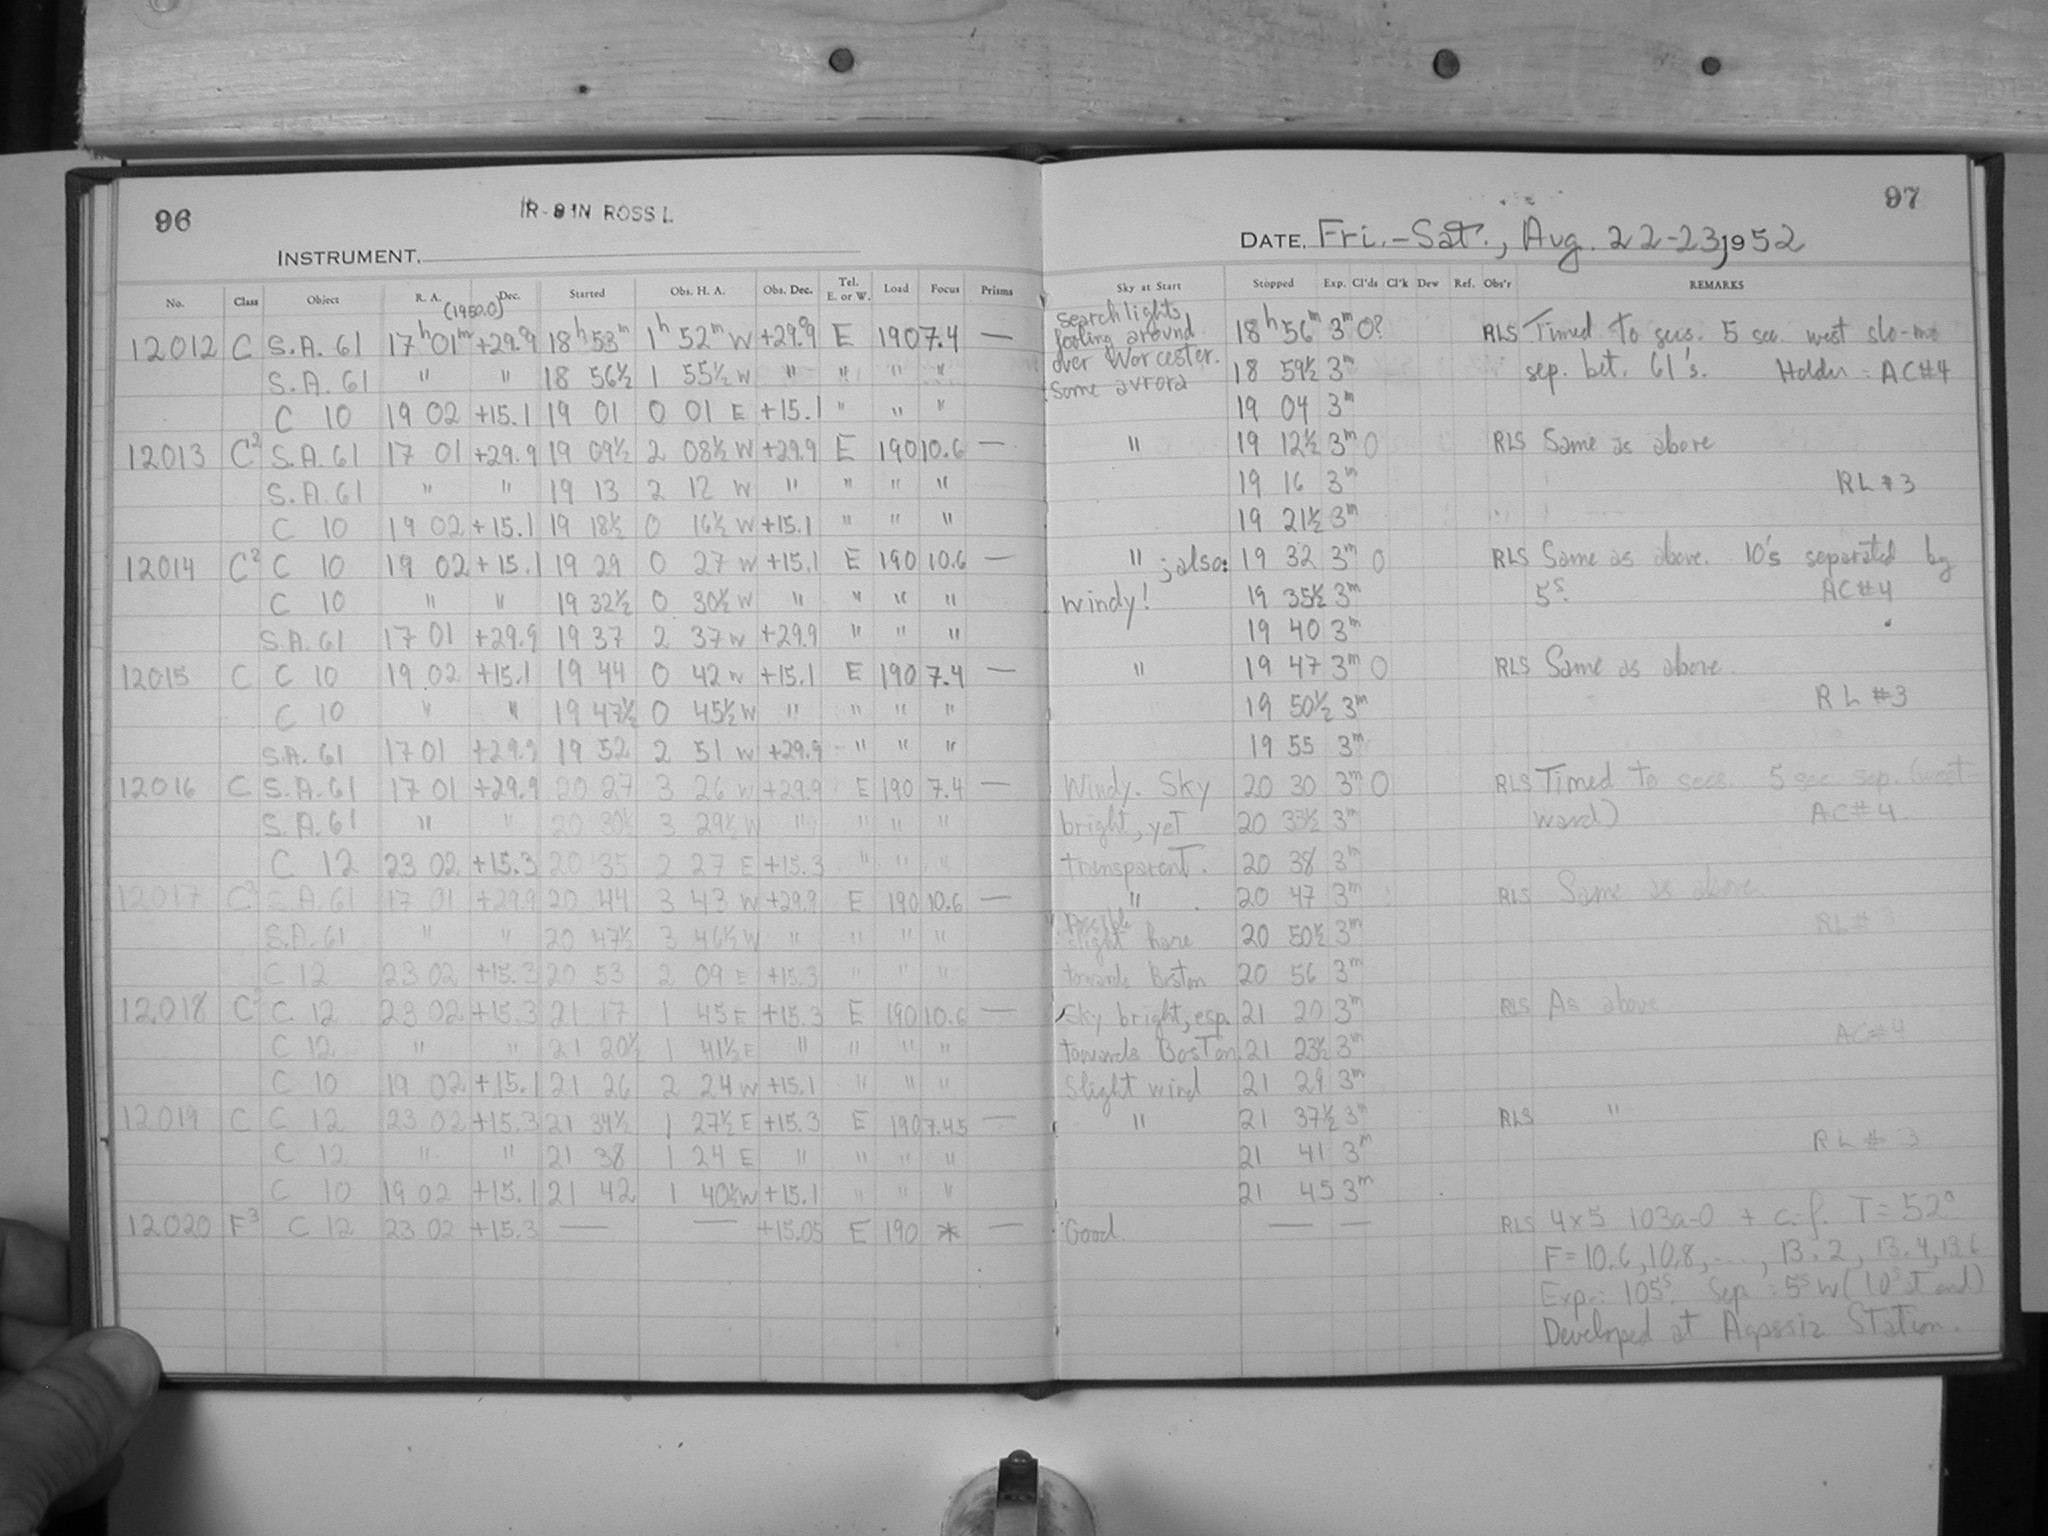 96
IR-8IN ROSS L
INSTRUMENT.
No. Class Object R. A. (1950.0) Dec. Started Obs. H. A. Obs. Dec. Tel. E. or W. Load Focus Prisms
12012 C S.A. 61 17h 01m +29.9 18h 53m 1h 52m W +29.9 E 190 7.4 —
S.A. 61 " " 18 56½ 1 55½ W " " " "
C 10 19 02 +15.1 19 01 0 01 E +15.1 " " "
12013 C2 S.A. 61 17 01 +29.9 19 09½ 2 08½ W +29.9 E 190 10.6 —
S.A. 61 " " 19 13 2 12 W " " " "
C 10 19 02 +15.1 19 18½ 0 16½ W +15.1 " " "
12014 C2 C 10 19 02 +15.1 19 29 0 27 W +15.1 E 190 10.6 —
C 10 " " 19 32½ 0 30½ W " " " "
S.A. 61 17 01 +29.9 19 37 2 37 W +29.9 " " "
12015 C C 10 19 02 +15.1 19 44 0 42 W +15.1 E 190 7.4 —
C 10 " " 19 47½ 0 45½ W " " " "
S.A. 61 17 01 +29.9 19 52 2 51 W +29.9 " " "
12016 C S.A. 61 17 01 +29.9 20 27 3 26 W +29.9 E 190 7.4 —
S.A. 61 " " 20 30½ 3 29½ W " " " "
C 12 23 02 +15.3 20 35 2 27 E +15.3 " " "
12017 C2 S.A. 61 17 01 +29.9 20 44 3 43 W +29.9 E 190 10.6 —
S.A. 61 " " 20 47½ 3 46½ W " " " "
C 12 23 02 +15.3 20 53 2 09 E +15.3 " " "
12018 C2 C 12 23 02 +15.3 21 17 1 45 E +15.3 E 190 10.6 —
C 12 " " 21 20½ 1 41½ E " " " "
C 10 19 02 +15.1 21 26 2 24 W +15.1 " " "
12019 C C 12 23 02 +15.3 21 34½ 1 27½ E +15.3 E 190 7.45 —
C 12 " " 21 38 1 24 E " " " "
C 10 19 02 +15.1 21 42 1 40½ W +15.1 " " "
12020 F3 C 12 23 02 +15.3 — — +15.05 E 190 * —
97
DATE, Fri.-Sat., Aug. 22-23, 1952
Sky at Start Stopped Exp. Cl'ds Cl'k Dew Ref. Obs'r REMARKS
searchlights
fooling around 18h 56m 3m 0? RLS Timed to secs. 5 sec. west slo-mo
over Worcester. 18 59½ 3m sep. bet. 61's. Holder = AC#4
Some aurora 19 04 3m
" 19 12½ 3m 0 RLS Same as above
19 16 3m RL #3
19 21½ 3m
" ; also: 19 32 3m 0 RLS Same as above. 10's separated by
windy! 19 35½ 3m 5s. AC#4
19 40 3m
" 19 47 3m 0 RLS Same as above.
19 50½ 3m RL #3
19 55 3m
Windy. Sky 20 30 3m 0 RLS Timed to secs. 5 sec sep. (west-
bright, yet 20 33½ 3m ward) AC#4
transparent. 20 38 3m
" 20 47 3m RLS Same as above.
Possible
slight haze 20 50½ 3m RL#3
towards Boston 20 56 3m
Sky bright, esp. 21 20 3m RLS As above
towards Boston 21 23½ 3m AC#4
Slight wind 21 29 3m
" 21 37½ 3m RLS "
21 41 3m RL #3
21 45 3m
Good. — — RLS 4x5 103a-O + c.-f. T = 52°
F = 10.6, 10.8, ..., 13.2, 13.4, 13.6
Exp.: 105s. Sep: 5s W (10s at end)
Developed at Agassiz Station.